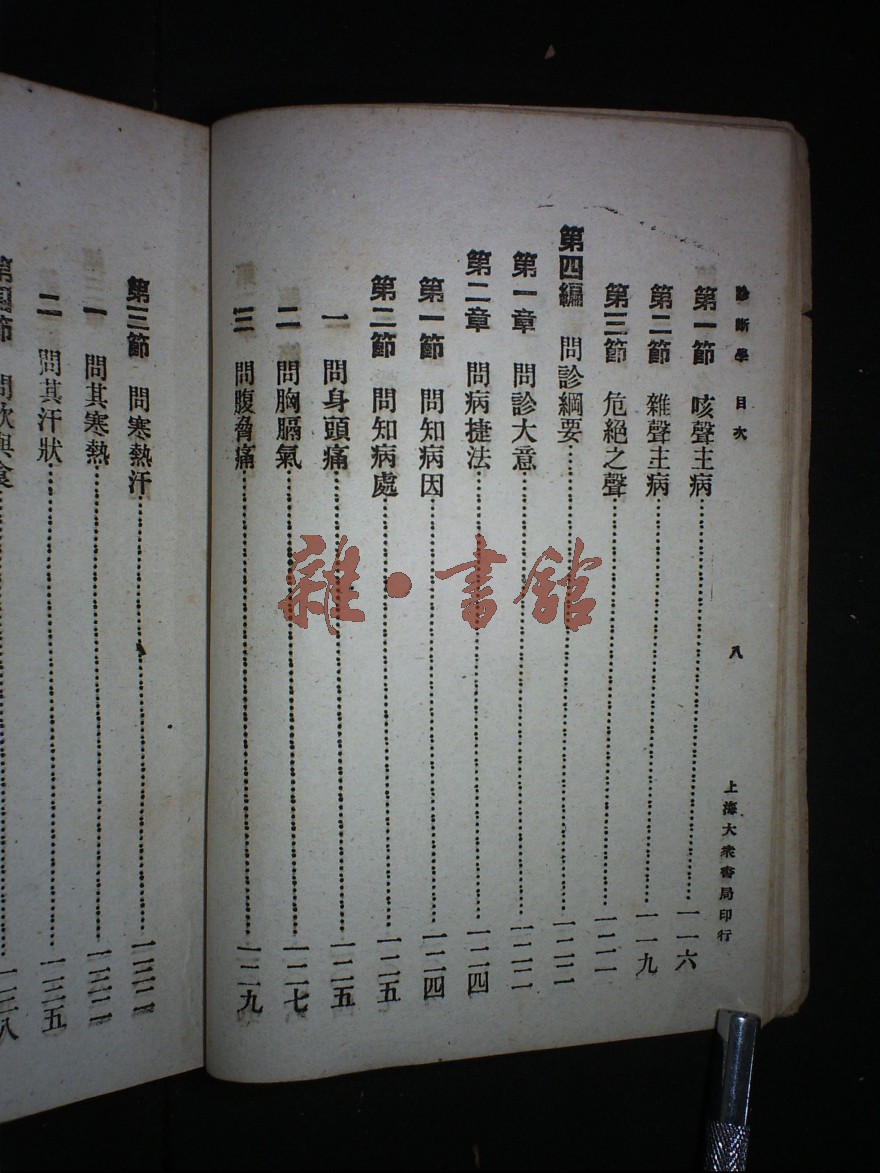 診斷學 目次 八 上海大衆書局印行
第一節 咳聲主病……一一六
第二節 雜聲主病……一一九
第三節 危絕之聲……一二一
第四編 問診綱要……一二二
第一章 問診大意……一二二
第二章 問病捷法……一二四
第一節 問知病因……一二四
第二節 問知病處……一二五
一 問身頭痛……一二五
二 問胸膈氣……一二七
三 問腹脅痛……一二九
第三節 問寒熱汗……一三二
一 問其寒熱……一三二
二 問其汗狀……一三五
第四節 問飲與食……一三八
雜·書館